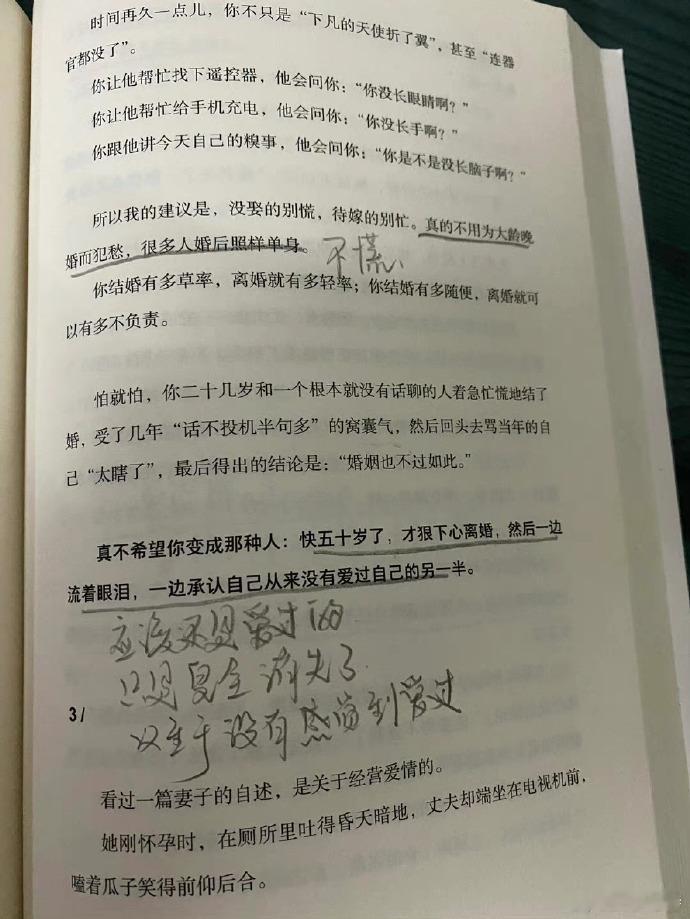 时间再久一点儿，你不只是“下凡的天使折了翼”，甚至“连器
官都没了”。
你让他帮忙找下遥控器，他会问你：“你没长眼睛啊？”
你让他帮忙给手机充电，他会问你：“你没长手啊？”
你跟他讲今天自己的糗事，他会问你：“你是不是没长脑子啊？”
所以我的建议是，没娶的别慌，待嫁的别忙。真的不用为大龄晚
婚而犯愁，很多人婚后照样单身。
不慌、
你结婚有多草率，离婚就有多轻率；你结婚有多随便，离婚就可
以有多不负责。
怕就怕，你二十几岁和一个根本就没有话聊的人着急忙慌地结了
婚，受了几年“话不投机半句多”的窝囊气，然后回头去骂当年的自
己“太瞎了”，最后得出的结论是：“婚姻也不过如此。”
真不希望你变成那种人：快五十岁了，才狠下心离婚，然后一边
流着眼泪，一边承认自己从来没有爱过自己的另一半。
应该还是爱过的
只是 消失了
3/
以至于没有感觉到爱过
看过一篇妻子的自述，是关于经营爱情的。
她刚怀孕时，在厕所里吐得昏天暗地，丈夫却端坐在电视机前，
嗑着瓜子笑得前仰后合。